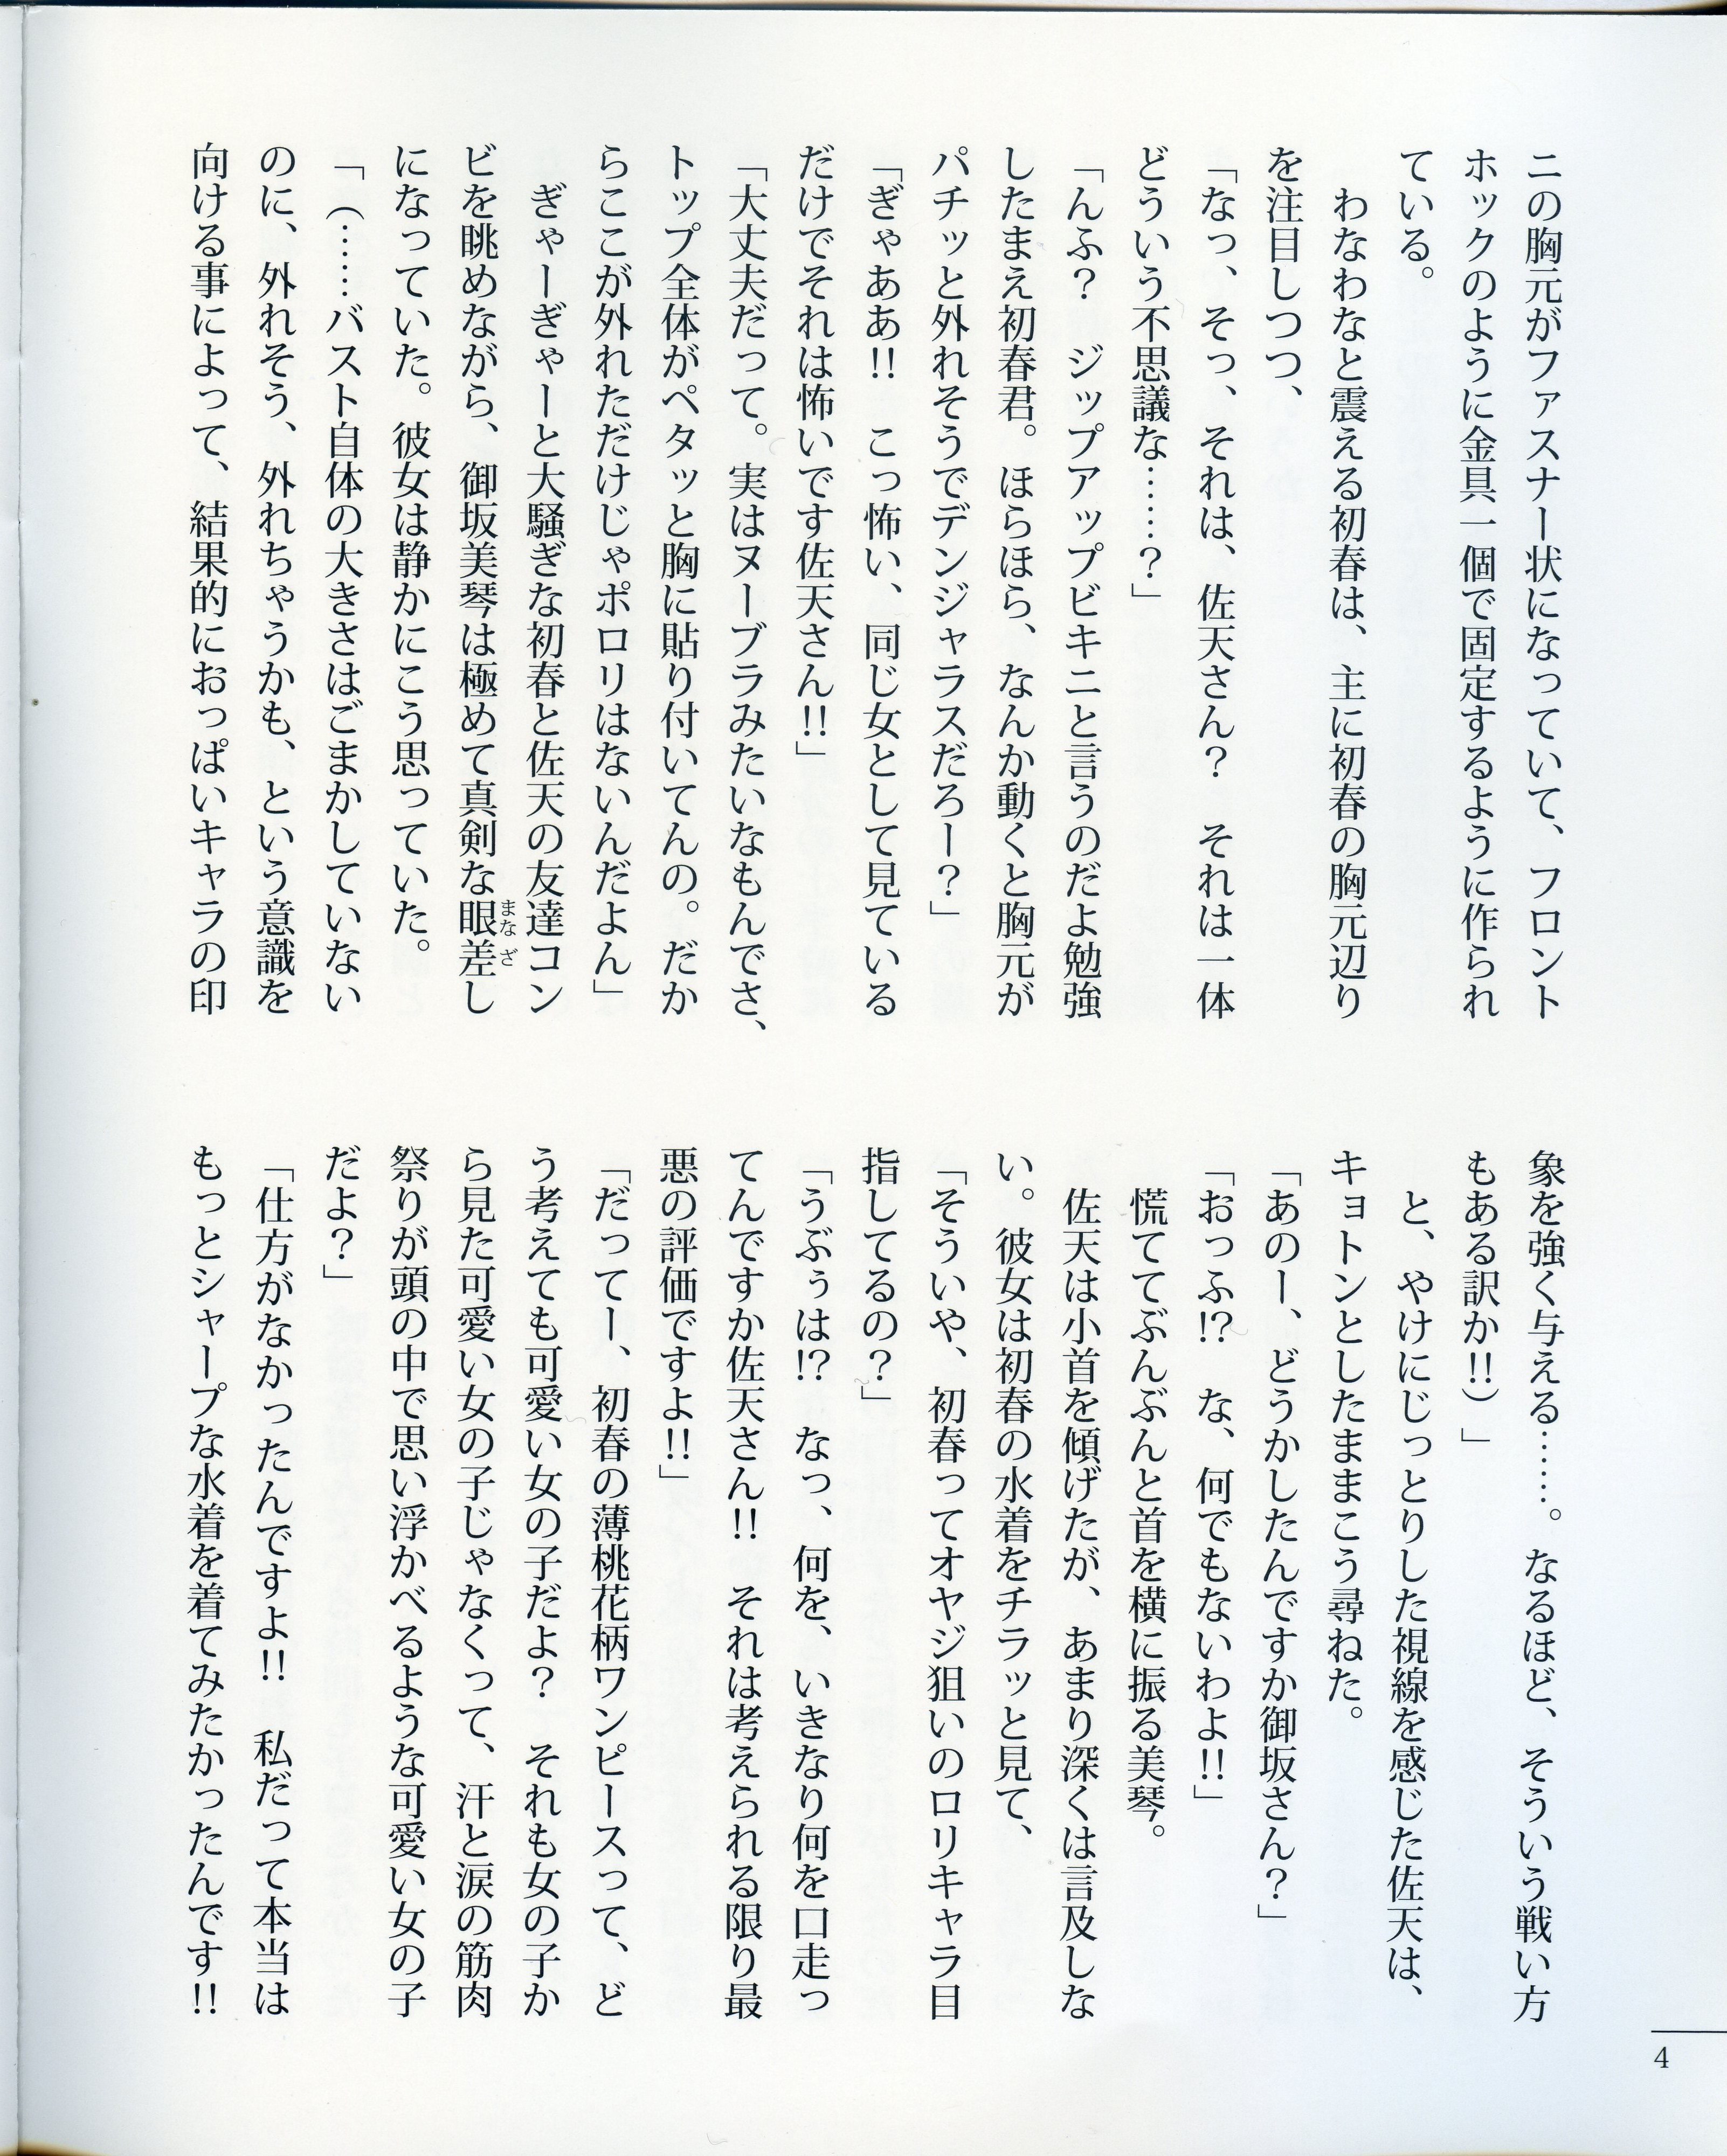 ニの胸元がファスナー状になっていて、フロント
ホックのように金具一個で固定するように作られ
ている。
　わなわなと震える初春は、主に初春の胸元辺り
を注目しつつ、
「なっ、そっ、それは、佐天さん？　それは一体
どういう不思議な……？」
「んふ？　ジップアップビキニと言うのだよ勉強
したまえ初春君。ほらほら、なんか動くと胸元が
パチッと外れそうでデンジャラスだろー？」
「ぎゃああ!!　こっ怖い、同じ女として見ている
だけでそれは怖いです佐天さん!!」
「大丈夫だって。実はヌーブラみたいなもんでさ、
トップ全体がペタッと胸に貼り付いてんの。だか
らここが外れただけじゃポロリはないんだよん」
　ぎゃーぎゃーと大騒ぎな初春と佐天の友達コン
ビを眺めながら、御坂美琴は極めて真剣な眼差し
まなざ
になっていた。彼女は静かにこう思っていた。
「（……バスト自体の大きさはごまかしていない
のに、外れそう、外れちゃうかも、という意識を
向ける事によって、結果的におっぱいキャラの印
象を強く与える……。なるほど、そういう戦い方
もある訳か!!）」
　と、やけにじっとりした視線を感じた佐天は、
キョトンとしたままこう尋ねた。
「あのー、どうかしたんですか御坂さん？」
「おっふ!?　な、何でもないわよ!!」
　慌ててぶんぶんと首を横に振る美琴。
　佐天は小首を傾げたが、あまり深くは言及しな
い。彼女は初春の水着をチラッと見て、
「そういや、初春ってオヤジ狙いのロリキャラ目
指してるの？」
「うぶぅは!?　なっ、何を、いきなり何を口走っ
てんですか佐天さん!!　それは考えられる限り最
悪の評価ですよ!!」
「だってー、初春の薄桃花柄ワンピースって、ど
う考えても可愛い女の子だよ？　それも女の子か
ら見た可愛い女の子じゃなくって、汗と涙の筋肉
祭りが頭の中で思い浮かべるような可愛い女の子
だよ？」
「仕方がなかったんですよ!!　私だって本当は
もっとシャープな水着を着てみたかったんです!!
4